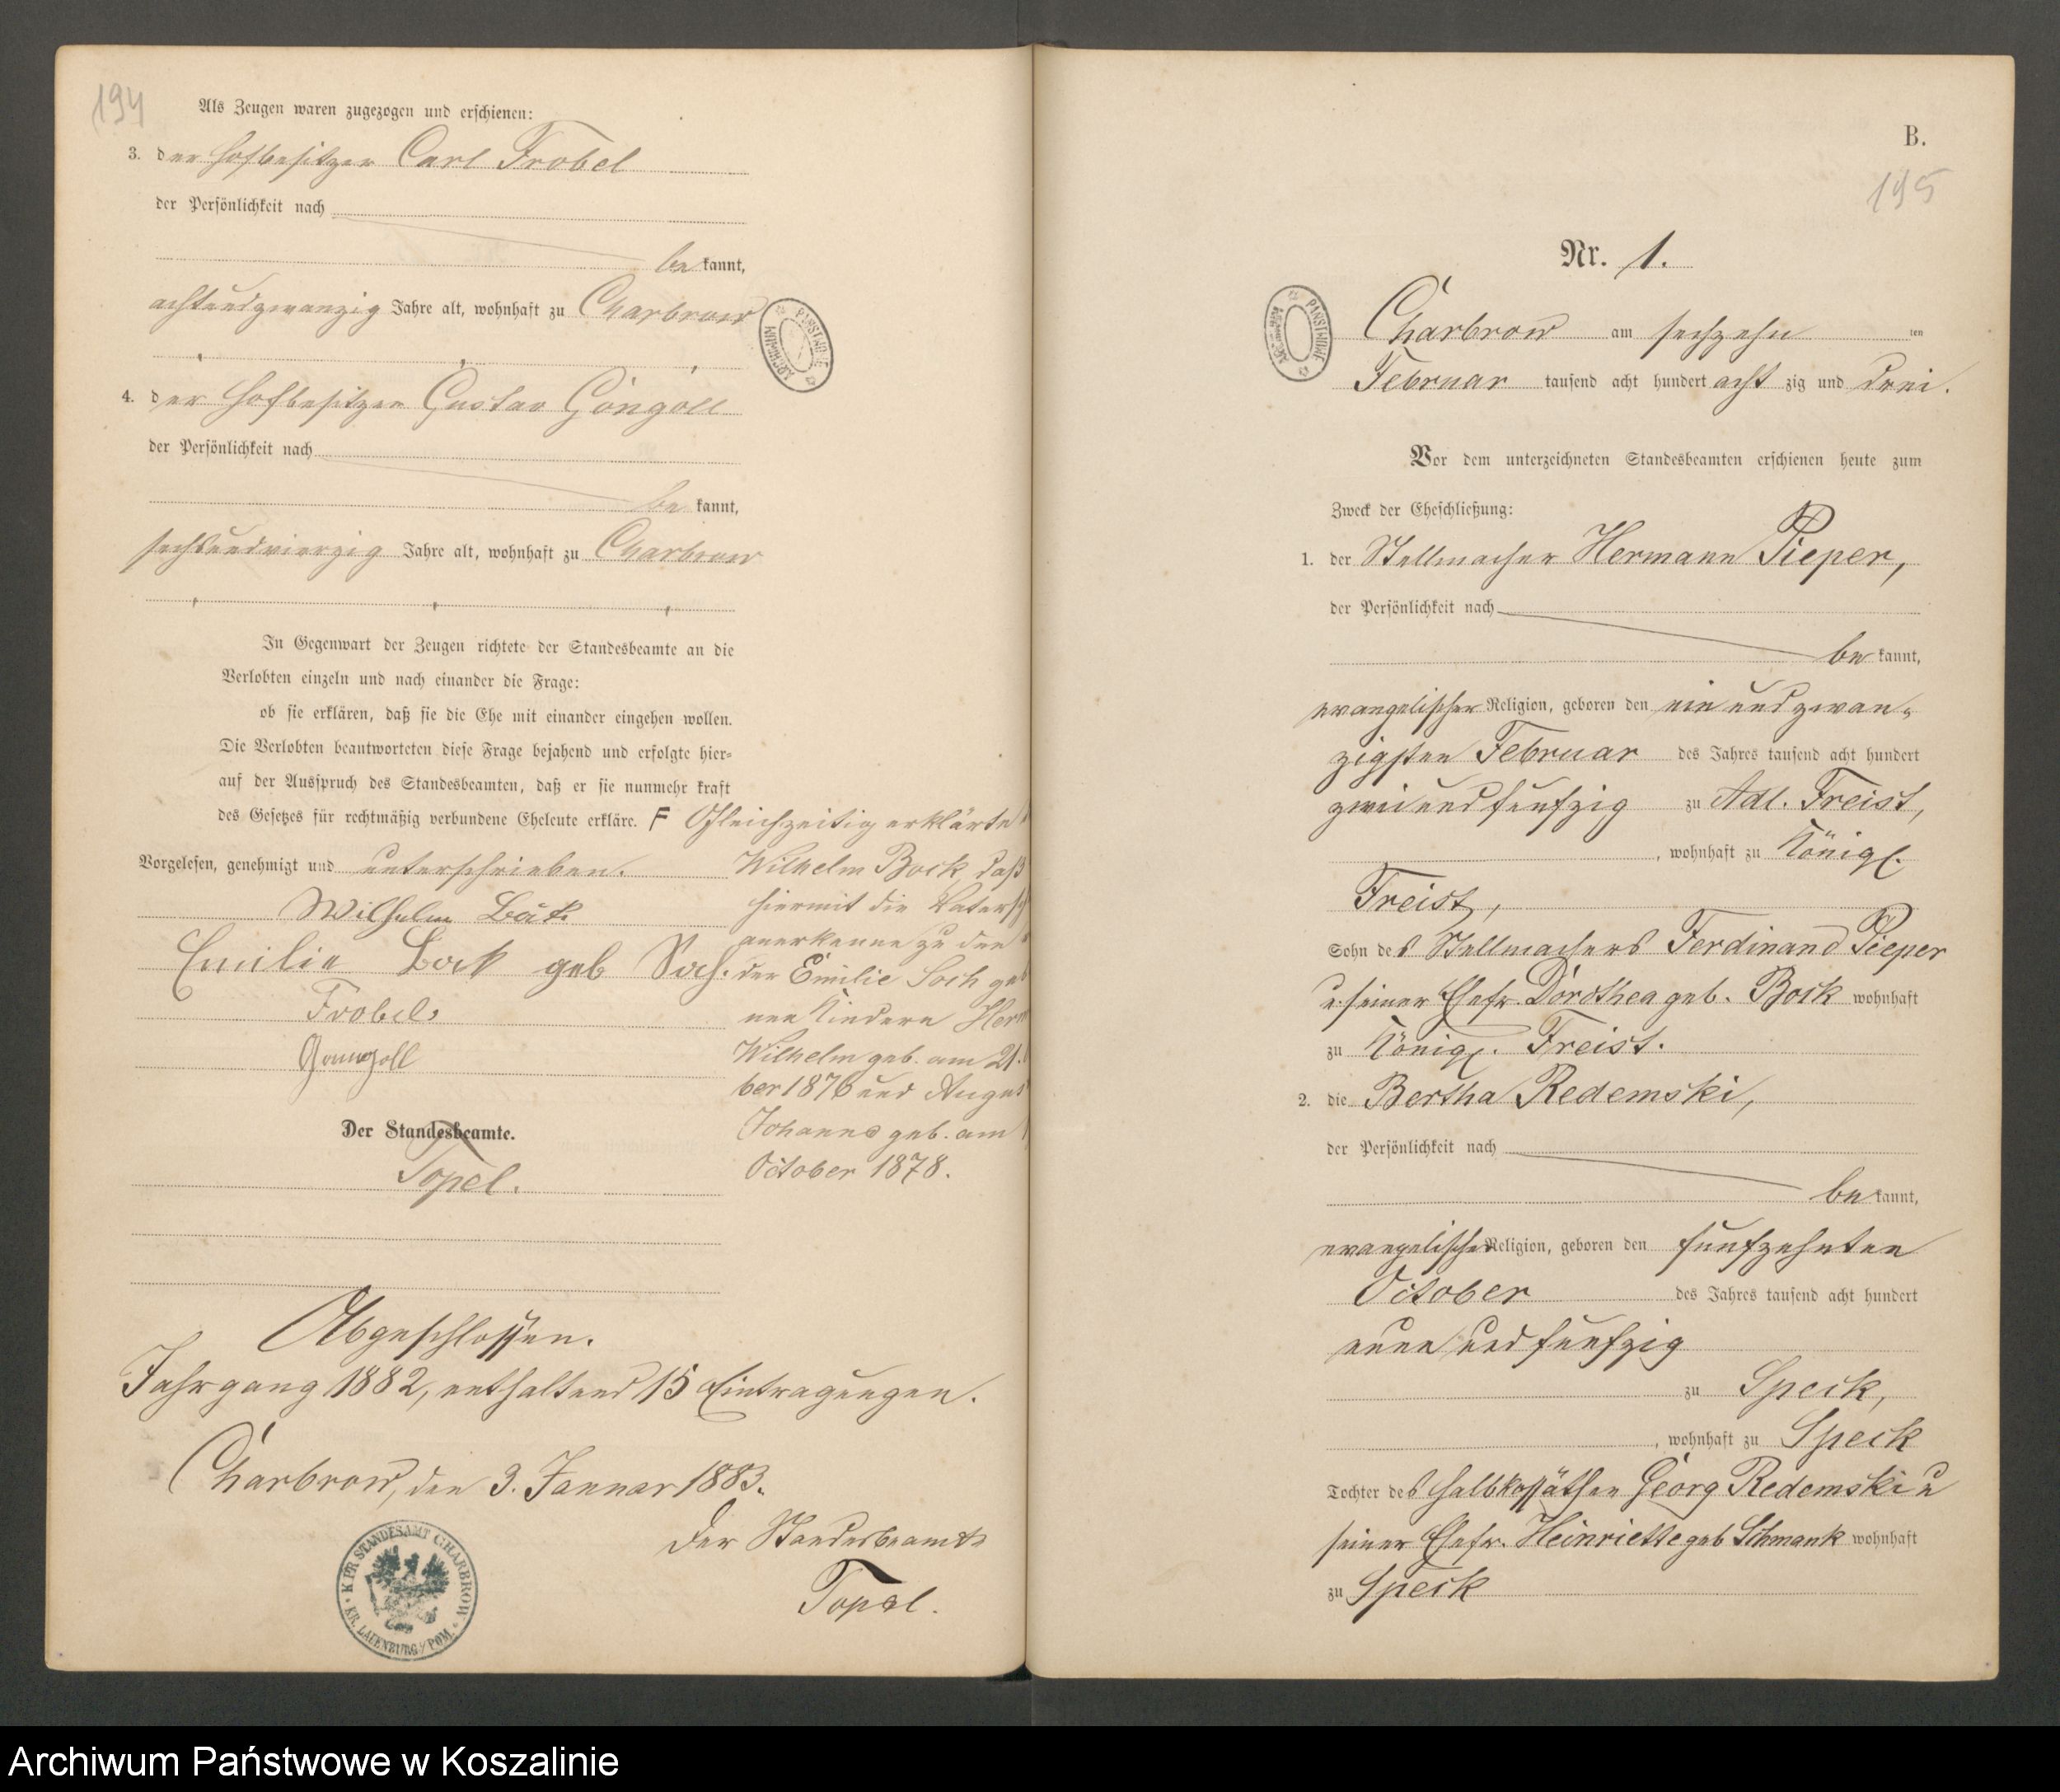 194
Als Zeugen waren zugezogen und erschienen:
3. der Hofbesitzer Carl Frobel
der Persönlichkeit nach
be kannt,
achtundzwanzig Jahre alt, wohnhaft zu Charbrow
4. der Hofbesitzer Gustav Gongoll
der Persönlichkeit nach
be kannt,
sechsundvierzig Jahre alt, wohnhaft zu Charbrow
In Gegenwart der Zeugen richtete der Standesbeamte an die
Verlobten einzeln und nach einander die Frage:
ob sie erklären, daß sie die Ehe mit einander eingehen wollen.
Die Verlobten beantworteten diese Frage bejahend und erfolgte hier-
auf der Ausspruch des Standesbeamten, daß er sie nunmehr kraft
des Gesetzes für rechtmäßig verbundene Eheleute erkläre. F Gleichzeitig erklärte
Vorgelesen, genehmigt und unterschrieben.
Wilhelm Bock, daß
hiermit die Vatersch
anerkenne zu den
der Emilie Soch geb
nen Kindern Herm
Wilhelm geb. am 21.
ber 1876 und Augus
Johanne geb. am
October 1878.
Wilhelm Bock
Emilie Bock geb Soch.
Frobel.
Gongoll
Der Standesbeamte.
Topel.
Abgeschlossen.
Jahrgang 1882, enthaltend 15 Eintragungen.
Charbrow, den 3. Januar 1883.
Der Standesbeamte
Topel.
K. PR. STANDESAMT CHARBROW
KR. LAUENBURG / POM.
ARCHIWUM PAŃSTWOWE
B.
195
Nr. 1.
ARCHIWUM PAŃSTWOWE
Charbrow am sechzehn ten
Februar tausend acht hundert acht zig und drei.
Vor dem unterzeichneten Standesbeamten erschienen heute zum
Zweck der Eheschließung:
1. der Stellmacher Hermann Pieper,
der Persönlichkeit nach
be kannt,
evangelischer Religion, geboren den ein und zwan-
zigsten Februar des Jahres tausend acht hundert
zwei und funfzig zu Adl. Freist,
, wohnhaft zu Königl.
Freist,
Sohn des Stellmachers Ferdinand Pieper
u. seiner Ehefr. Dorothea geb. Bock wohnhaft
zu Königl. Freist.
2. die Bertha Redemski,
der Persönlichkeit nach
be kannt,
evangelischer Religion, geboren den funfzehnten
October des Jahres tausend acht hundert
neun und funfzig
zu Speck,
, wohnhaft zu Speck
Tochter des Halbkossäthen Georg Redemski u
seiner Ehefr. Heinriette geb Schmank wohnhaft
zu Speck
Archiwum Państwowe w Koszalinie